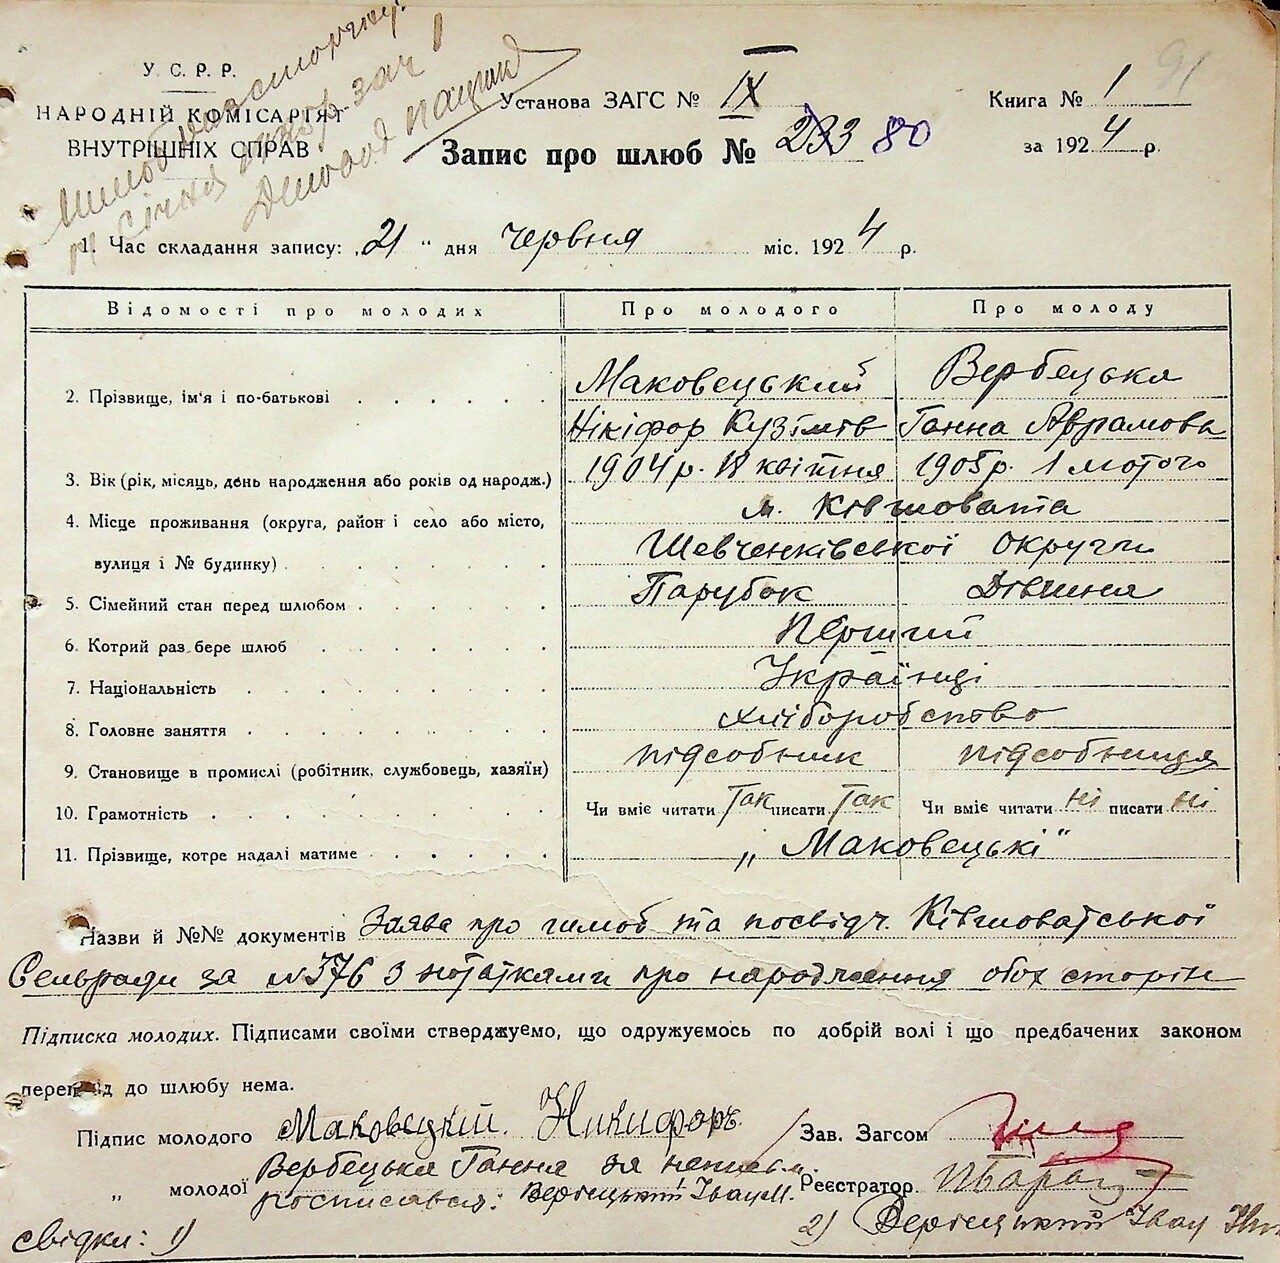 У. С. Р. Р.
НАРОДНІЙ КОМІСАРІЯТ
ВНУТРІШНІХ СПРАВ
Установа ЗАГС № IX
Книга № 1 91
Запис про шлюб № 233 80
за 1924 р.
1. Час складання запису: „21" дня Червня міс. 1924 р.
Відомості про молодих Про молодого Про молоду
2. Прізвище, ім'я і по-батькові Маковецький Вербецька
Нікіфор Кузімів Ганна Аврамовн
3. Вік (рік, місяць, день народження або років од народж.) 1904 р. 18 квітня 1905 р. 1 лютого
4. Місце проживання (округа, район і село або місто, м. Ківшовата
вулиця і № будинку) Шевченківської Округи
5. Сімейний стан перед шлюбом Парубок Дівчина
6. Котрий раз бере шлюб Перший
7. Національність Українці
8. Головне заняття хліборобство
9. Становище в промислі (робітник, службовець, хазяїн) підсобник підсобниця
10. Грамотність Чи вміє читати Так писати Так Чи вміє читати ні писати ні
11. Прізвище, котре надалі матиме „Маковецькі"
Назви й №№ документів Заява про шлюб та посвідч. Ківшоватської
Сельради за №376 з нотатками про народження обох сторін
Підписка молодих. Підписами своїми стверджуємо, що одружуємось по добрій волі і що предбачених законом
перепон від до шлюбу нема.
Підпис молодого Маковецкій. Никифоръ. Зав. Загсом
„ молодої Вербецька Ганна за неписьм.
росписався: Вербецький Іван М. Реєстратор
свідки: 1) 2) Вербецький Іван